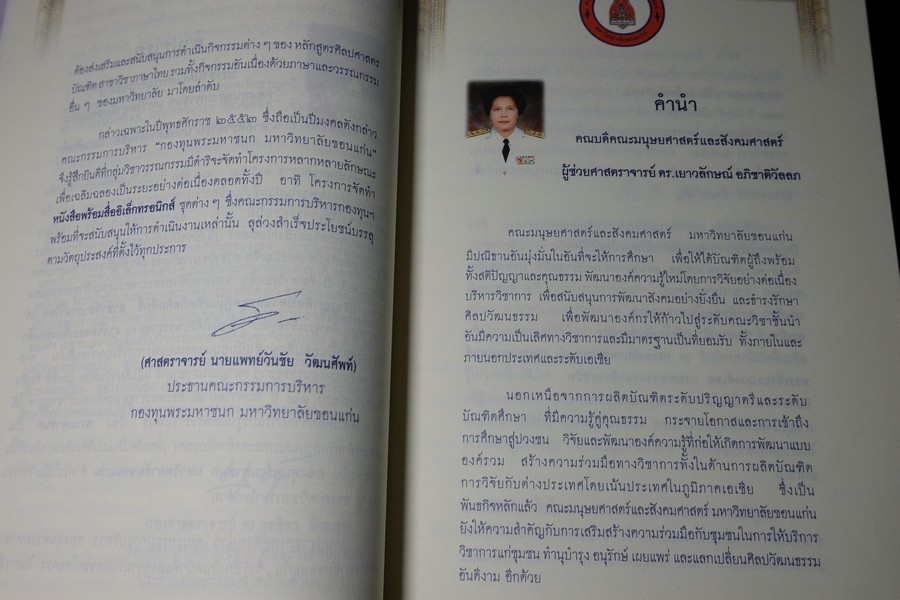 ต้องส่งเสริมและสนับสนุนการดำเนินกิจกรรมต่าง ๆ ของ หลักสูตรศิลปศาสตร
บัณฑิต สาขาวิชาภาษาไทย รวมทั้งกิจกรรมอันเนื่องด้วยภาษาและวรรณกรรม
อื่น ๆ ของมหาวิทยาลัย มาโดยลำดับ
กล่าวเฉพาะในปีพุทธศักราช ๒๕๕๒ ซึ่งถือเป็นปีมงคลดังกล่าว
คณะกรรมการบริหาร "กองทุนพระมหาชนก มหาวิทยาลัยขอนแก่น"
จึงรู้สึกยินดีที่กลุ่มวิชาวรรณกรรมมีดำริจะจัดทำโครงการหลากหลายลักษณะ
เพื่อเฉลิมฉลองเป็นระยะอย่างต่อเนื่องตลอดทั้งปี อาทิ โครงการจัดทำ
หนังสือพร้อมสื่ออิเล็กทรอนิกส์ ชุดต่าง ๆ ซึ่งคณะกรรมการบริหารกองทุนฯ
พร้อมที่จะสนับสนุนให้การดำเนินงานเหล่านั้น ลุล่วงสำเร็จประโยชน์บรรลุ
ตามวัตถุประสงค์ที่ตั้งไว้ทุกประการ
(ศาสตราจารย์ นายแพทย์วันชัย วัฒนศัพท์)
ประธานคณะกรรมการบริหาร
กองทุนพระมหาชนก มหาวิทยาลัยขอนแก่น
คำนำ
คณบดีคณะมนุษยศาสตร์และสังคมศาสตร์
ผู้ช่วยศาสตราจารย์ ดร.เยาวลักษณ์ อภิชาติวัลลภ
คณะมนุษยศาสตร์และสังคมศาสตร์ มหาวิทยาลัยขอนแก่น
มีปณิธานอันมุ่งมั่นในอันที่จะให้การศึกษา เพื่อให้ได้บัณฑิตผู้ถึงพร้อม
ทั้งสติปัญญาและคุณธรรม พัฒนาองค์ความรู้ใหม่โดยการวิจัยอย่างต่อเนื่อง
บริหารวิชาการ เพื่อสนับสนุนการพัฒนาสังคมอย่างยั่งยืน และธำรงรักษา
ศิลปวัฒนธรรม เพื่อพัฒนาองค์กรให้ก้าวไปสู่ระดับคณะวิชาชั้นนำ
อันมีความเป็นเลิศทางวิชาการและมีมาตรฐานเป็นที่ยอมรับ ทั้งภายในและ
ภายนอกประเทศและระดับเอเชีย
นอกเหนือจากการผลิตบัณฑิตระดับปริญญาตรีและระดับ
บัณฑิตศึกษา ที่มีความรู้คู่คุณธรรม กระจายโอกาสและการเข้าถึง
การศึกษาสู่ปวงชน วิจัยและพัฒนาองค์ความรู้ที่ก่อให้เกิดการพัฒนาแบบ
องค์รวม สร้างความร่วมมือทางวิชาการทั้งในด้านการผลิตบัณฑิต
การวิจัยกับต่างประเทศโดยเน้นประเทศในภูมิภาคเอเชีย ซึ่งเป็น
พันธกิจหลักแล้ว คณะมนุษยศาสตร์และสังคมศาสตร์ มหาวิทยาลัยขอนแก่น
ยังให้ความสำคัญกับการเสริมสร้างความร่วมมือกับชุมชนในการให้บริการ
วิชาการแก่ชุมชน ทำนุบำรุง อนุรักษ์ เผยแพร่ และแลกเปลี่ยนศิลปวัฒนธรรม
อันดีงาม อีกด้วย